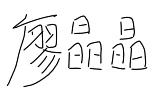 廖晶晶